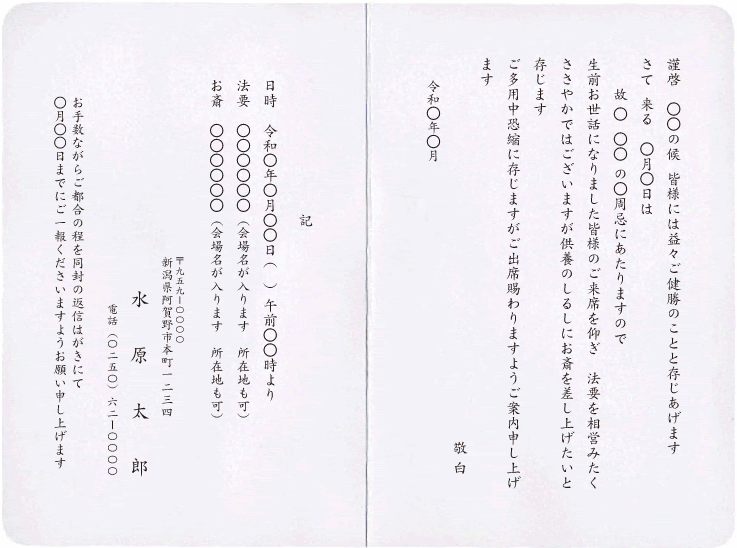 謹啓　〇〇の候　皆様には益々ご健勝のことと存じあげます
さて　来る　〇月〇日は
故　〇　〇〇　の〇周忌にあたりますので
生前お世話になりました皆様のご来席を仰ぎ　法要を相営みたく
ささやかではございますが供養のしるしにお斎を差し上げたいと
存じます
ご多用中恐縮に存じますがご出席賜わりますようご案内申し上げ
ます
敬白
令和〇年〇月
記
日時　令和〇年〇月〇〇日（　）午前〇〇時より
法要　〇〇〇〇〇〇（会場名が入ります　所在地も可）
お斎　〇〇〇〇〇〇（会場名が入ります　所在地も可）
〒九五九ー〇〇〇〇
新潟県阿賀野市本町一二三四
水原太郎
電話（〇二五〇）六二ー〇〇〇〇
お手数ながらご都合の程を同封の返信はがきにて
〇月〇〇日までにご一報くださいますようお願い申し上げます